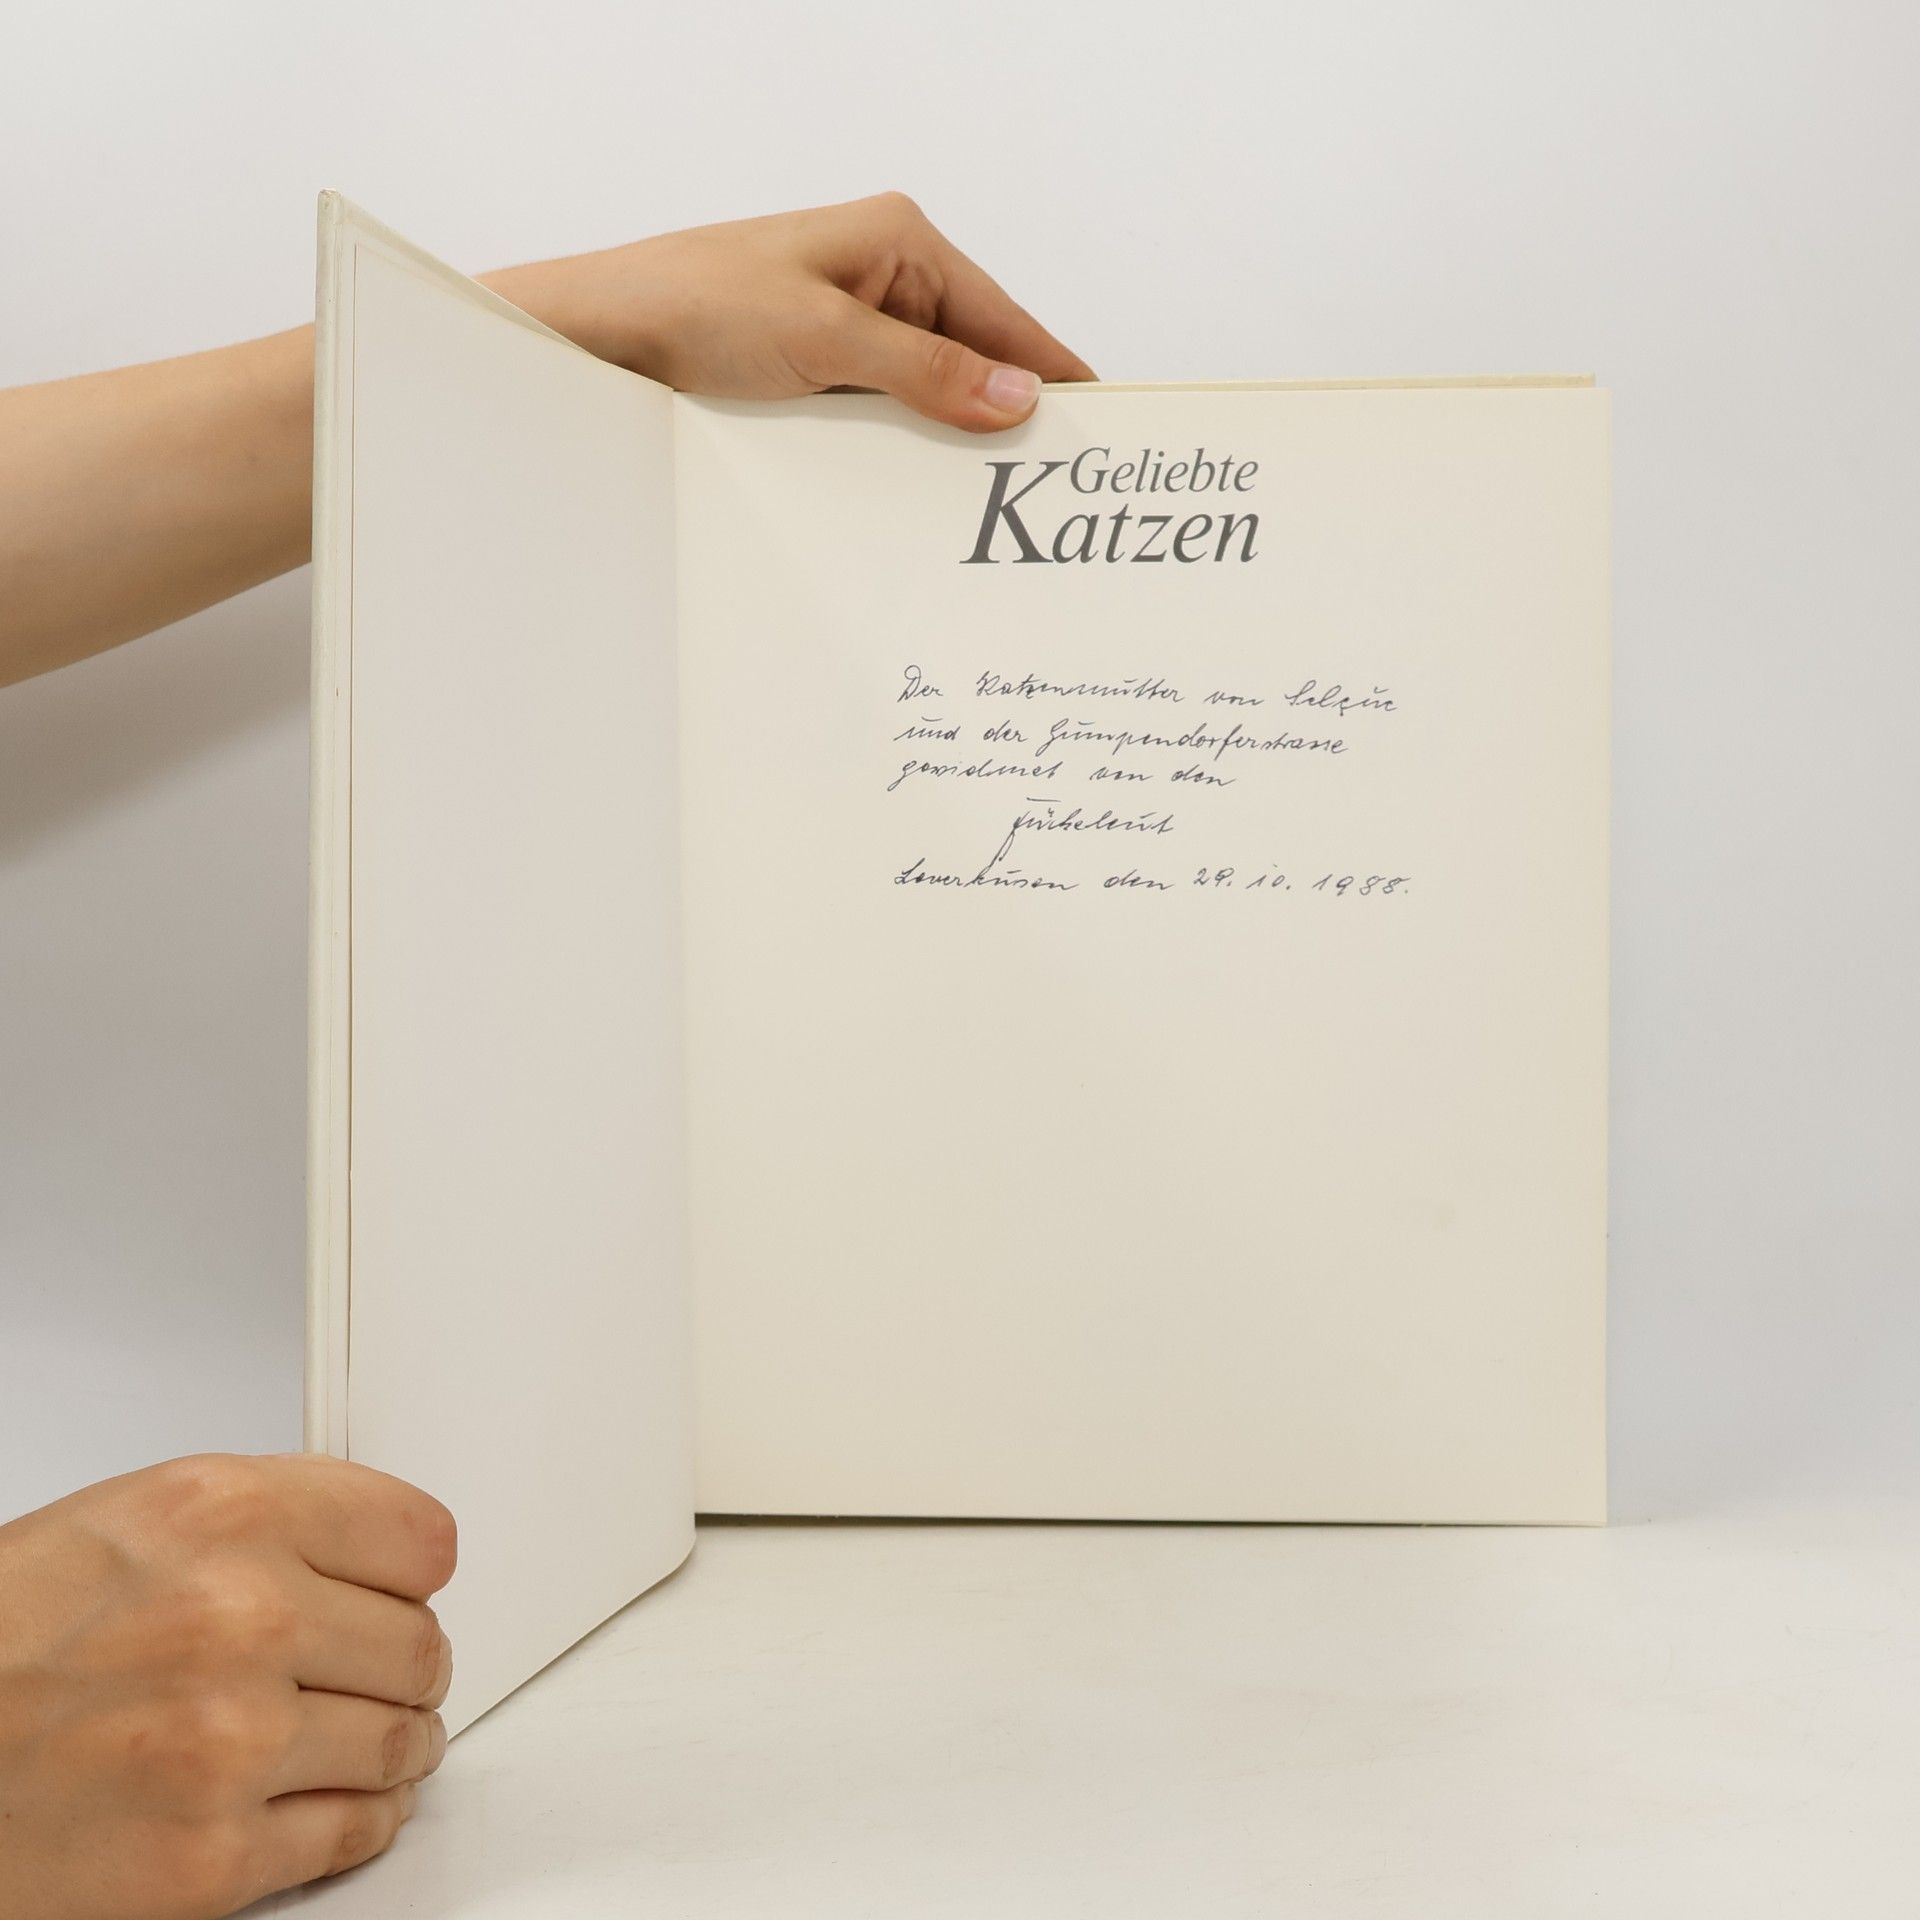 Geliebte
Katzen
Der Katzenmutter von Selçuc
und der Gumpendorferstrasse
gewidmet von den
Leverkusen den 29. 10. 1988.